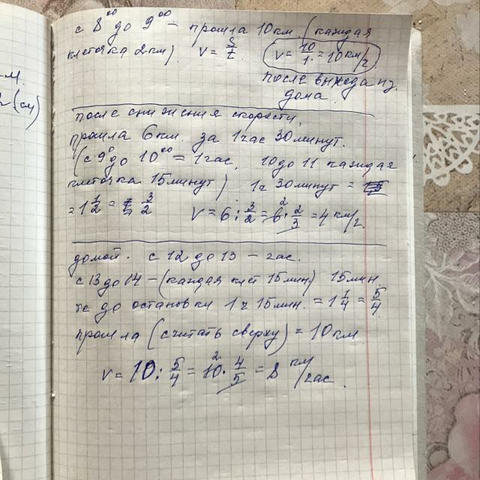 м.
(см)
с 8⁰⁰ до 9⁰⁰ – прошла 10 км (каждая
клеточка 2 км) v = S/t v = 10/1 = 10 км/г
после выхода из
дома.
после снижения скорости,
прошла 6 км за 1 час 30 минут.
(с 9⁰ до 10⁰⁰ = 1 час, 10 до 11 каждая
клеточка 15 минут) 1ч 30 минут =
= 1 1/2 = 3/2 v = 6 : 3/2 = 6 · 2/3 = 4 км/г
домой. с 12 до 13 – час.
с 13 до 14 – (каждая клет 15 мин) 15 мин
те до остановки 1ч 15 мин. = 1 1/4 = 5/4
прошла (считать сверху) = 10 км
v = 10 : 5/4 = 10 · 4/5 = 8 км/час.